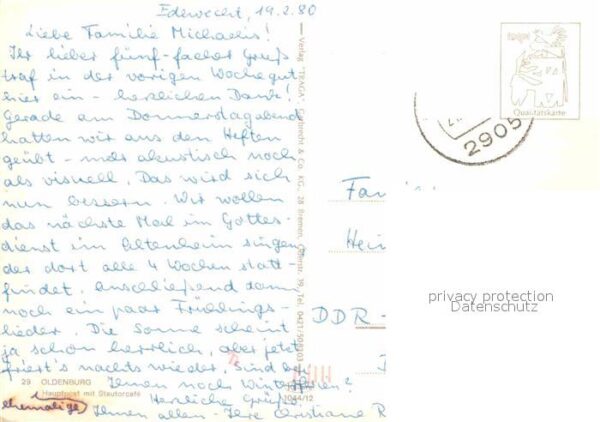 Edewecht, 19.2.80
Liebe Familie Michaelis!
Ihr lieber fünf-facher Gruß
traf in der vorigen Woche gut
hier ein - herzlichen Dank!
Gerade am Donnerstagabend
hatten wir aus den Heften
geübt - mehr akustisch noch
als visuell. Das wird sich
nun bessern. Wir wollen
das nächste Mal im Gottes-
dienst im Altenheim singen
der dort alle 4 Wochen statt-
findet, anschließend dann
noch ein paar Frühlings-
lieder. Die Sonne scheint
ja schon herrlich, aber jetzt
friert's nachts wieder. Sind bei
Ihnen noch Winterferien?
29 OLDENBURG
Hauptpost mit Stautorcafé
ehemalige
Herzliche Grüße
Ihnen allen - Ihre Christiane R
Verlag "TRAGA" & Co. KG., 28 Bremen, 39, Tel. 0421/
1044/12
2905
Qualitätskarte
Fam
Hein
DDR -
privacy protection
Datenschutz